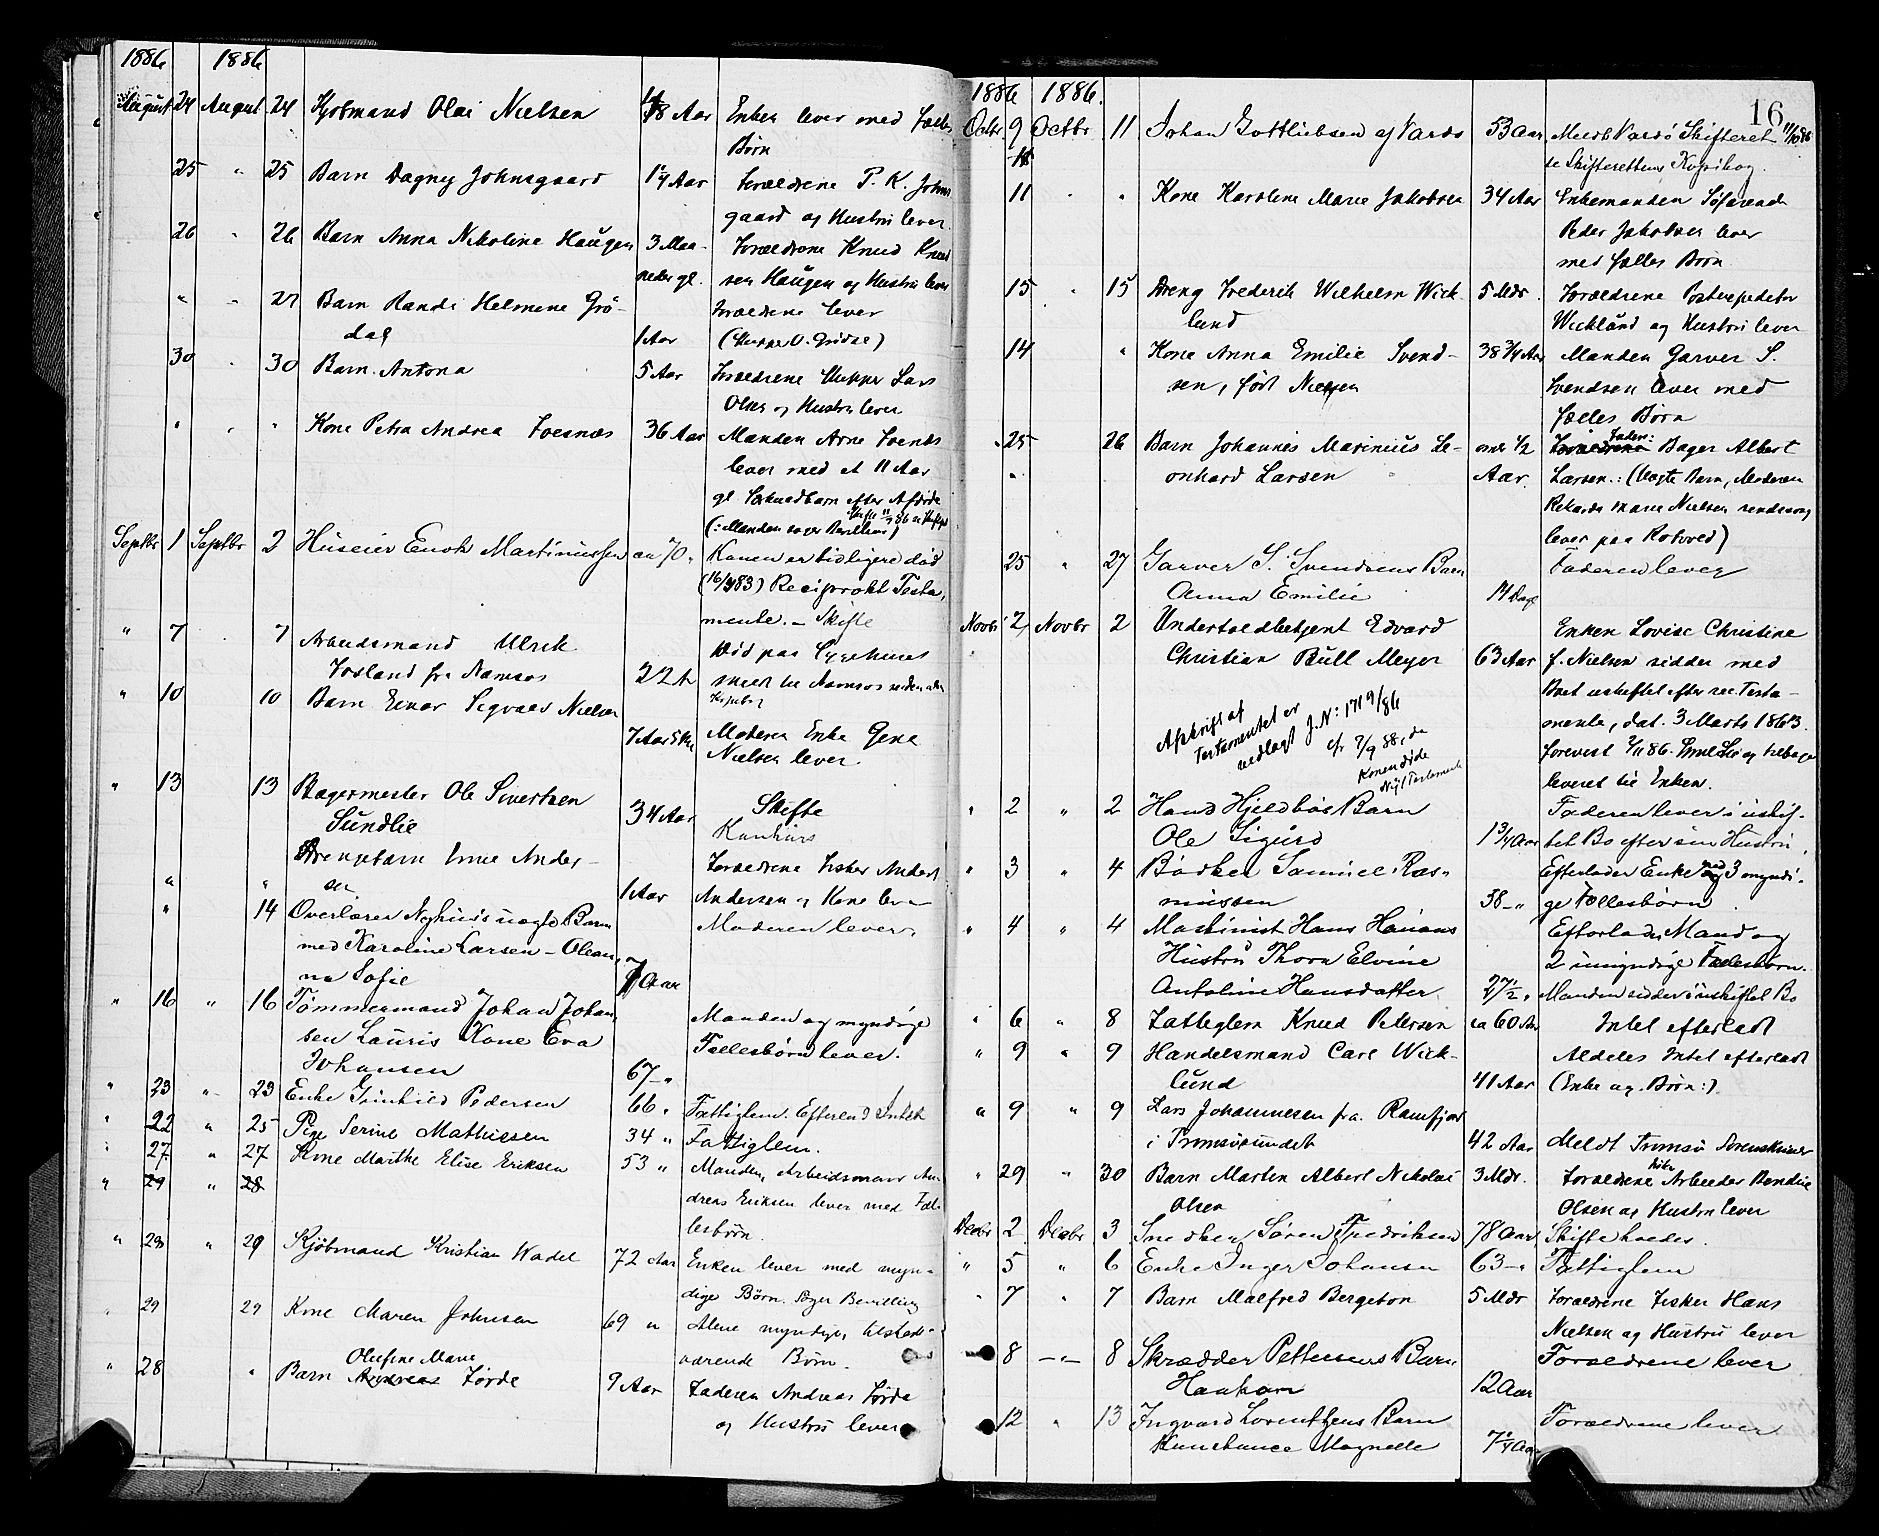 1886 1886
August 24 August 24 Kjøbmand Olai Nielsen 48 Aar Enken lever med Fælles
Børn
25 " 25 Barn Dagny Johnsgaard 1 1/4 Aar Forældrene P. K. Johns
gaard og Hustru lever
26 " 26 Barn Anna Nikoline Haugen 3 Maa- Forældrene Knud Knud
neder gl. sen Haugen og Hustru lever
" " 27 Barn Randi Helmine Grö- Forældrene lever
dal 1 Aar
30 " 30 Barn Antona 5 Aar Forældrene Lars
Olsen og Hustru lever
" " " Kone Petra Andrea 36 Aar Manden Arne
lever med et 11 Aar
gl. efter Afdøde
(: Manden søger Bevilling)
Septbr 1 Septbr 2 Huseier Enok Martinussen ca 70 " Konen er tidligere død
83) Reciprokt Testa,
mente. - Skifte
" 7 . 7 Arbeidsmand Ulrik Død paa Sygehuset
fra Namsos 22 A meldt til Namsos
" 10 10 Barn Einar Sigvald Nielsen Kopibog
7 Aar Moderen Enke Gina
Nielsen lever.
" 13 13 Bagermester Ole Sivertsen
Sundlie 34 Aar Skifte
Konkurs
Drengebarn Ander- Forældrene Fisker Anders
" " sen 1 Aar Andersen og Kone lever
" 14 Overlærer uægte Barn Moderen lever.
med Karoline Larsen - Olean,
na Sofie Aar
" 16 " 16 Tømmermand Johan Johan, Manden og myndige
sen Lauris Kone Eva Fællesbørn lever.
Johansen 67 - "
" 23 " 23 Enke Gunhild Pedersen 66 " Fattiglem. Efterlod Intet
" 22 " 25 Pige Serine Mathissen 34 " Fattiglem.
" 27. " 27 Kone Marthe Elise Eriksen 53 " Manden, Arbeidsmand An-
" 29 " 28 dreas Eriksen lever med Fæl-
lesbørn.
" 28 " 29 Kjöbmand Kristian Wadel 72 Aar Enken lever med myn-
dige Børn. Søger Bevilling
29 29 Kone Maren Johnsen 69 " Alene myndige, tilstede-
værende Børn.
Olufine Marie
" 28 " Barn Førde 9 Aar Faderen Andreas Førde
og Hustru lever
16
1886 1886.
Octbr. 9 Octbr 11 Johan Gottliebsen af Vardö 53 Aar. Meldt Vardö Skifteret 11/10 86
se Skifterettens Kopibog.
11 " " Kone Karoline Marie Jakobsen 34 Aar Enkemanden Söfarende
Peder Jakobsen lever
med fælles Børn
15 " 15 Dreng Frederik Wilhelm Wick- 5 Mdr. Forældrene Postexpeditør
lund Wicklund og Hustru lever
14 " Kone Anna Emilie Svend- 38 3/4 Aar Manden Garver S.
sen, født Nielsen Svendsen lever med
fælles Børn
" 25 26 Barn Johannes Marinius Le- omtr 1/2 Forældrene Faderen: Bager Albert
" onhard Larsen Aar. Larsen.: (Uægte Barn, Moderen
Rikarda Marie Nielsen
lever paa Kotved)
25 " 27 Garver S. Svendsens Barn Faderen lever
Anna Emilie 14 Dage
Novbr 2, Novbr 2 Undertoldbetjent Edvard Enken Lovise Christine
Christian Bull Meyer 63 Aar f. Nielsen sidder med
Boet uskiftet efter rec. Testa-
mente, dat. 3 Marts 1863.
forevist 2/11 86. og tilbage
leveret til Enken.
Afskrift af
Testamentet er
vedlagt J. N: 1719/86
cfr 7/9 88, da
Konen döde
Nyt Testamente
" 2 " 2 Hans Hjeldbos Barn Faderen lever i uskif-
Ole Sigurd 1 3/4 Aar tet Bo efter sin Hustru.
" 3 " 4 Bödker Samuel Ras- Efterlader Enke med 3 myndi-
mussen 38 - " ge Fællesbörn.
" 4 " 4 Maskinist Hans Hansens Efterlader Mand og
Hustru Thora Elvine 2 umyndige Fællesbörn.
Antoline Hansdatter 27 1/2 " Manden sidder i uskiftet Bo
" 6 " 8 Fattiglem Knud Petersen ca 60 Aar Intet efterladt
" 9 " 9 Handelsmand Carl Wick- Aldeles Intet efterladt
lund 41 Aar (Enke og Börn:).
" 9 " 9 Lars Johannesen fra Ramfjord
i Tromsøsundet 42 Aar Meldt Tromsø Sorenskriver
" 29 " 30 Barn Marten Albert Nikolai 3 Mdr. Forældrene Arbeider
Olsen Olsen og Hustru lever
Decbr 2 Decbr 3 Snedker Sören Fredriksen 78 Aar Skifte holdes.
" 5 " 6 Enke Inger Johansen 63 - " Fattiglem
" 7 " 7 Barn Malfred Bergeton 5 Mdr Forældrene Fisker Hans
Nielsen og Hustru lever
8 - " - 8 Skrædder Pettersens Barn Forældrene lever
12 Aar
" 12 " 13 Ingvard Lorentzens Barn Forældrene lever
Konstance Magnelle 7 1/4 Aar